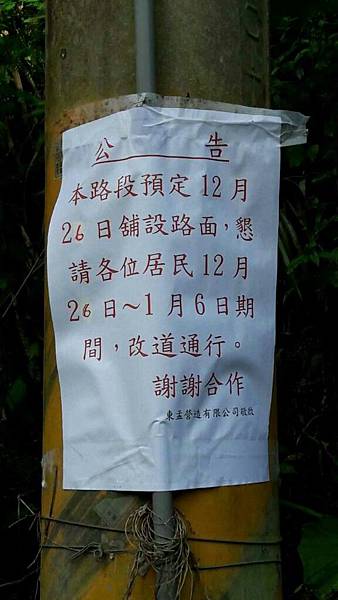 公告
本路段預定12月
26日舖設路面，懇
請各位居民12月
26日～1月6日期
間，改道通行。
謝謝合作
東孟營造有限公司敬啟